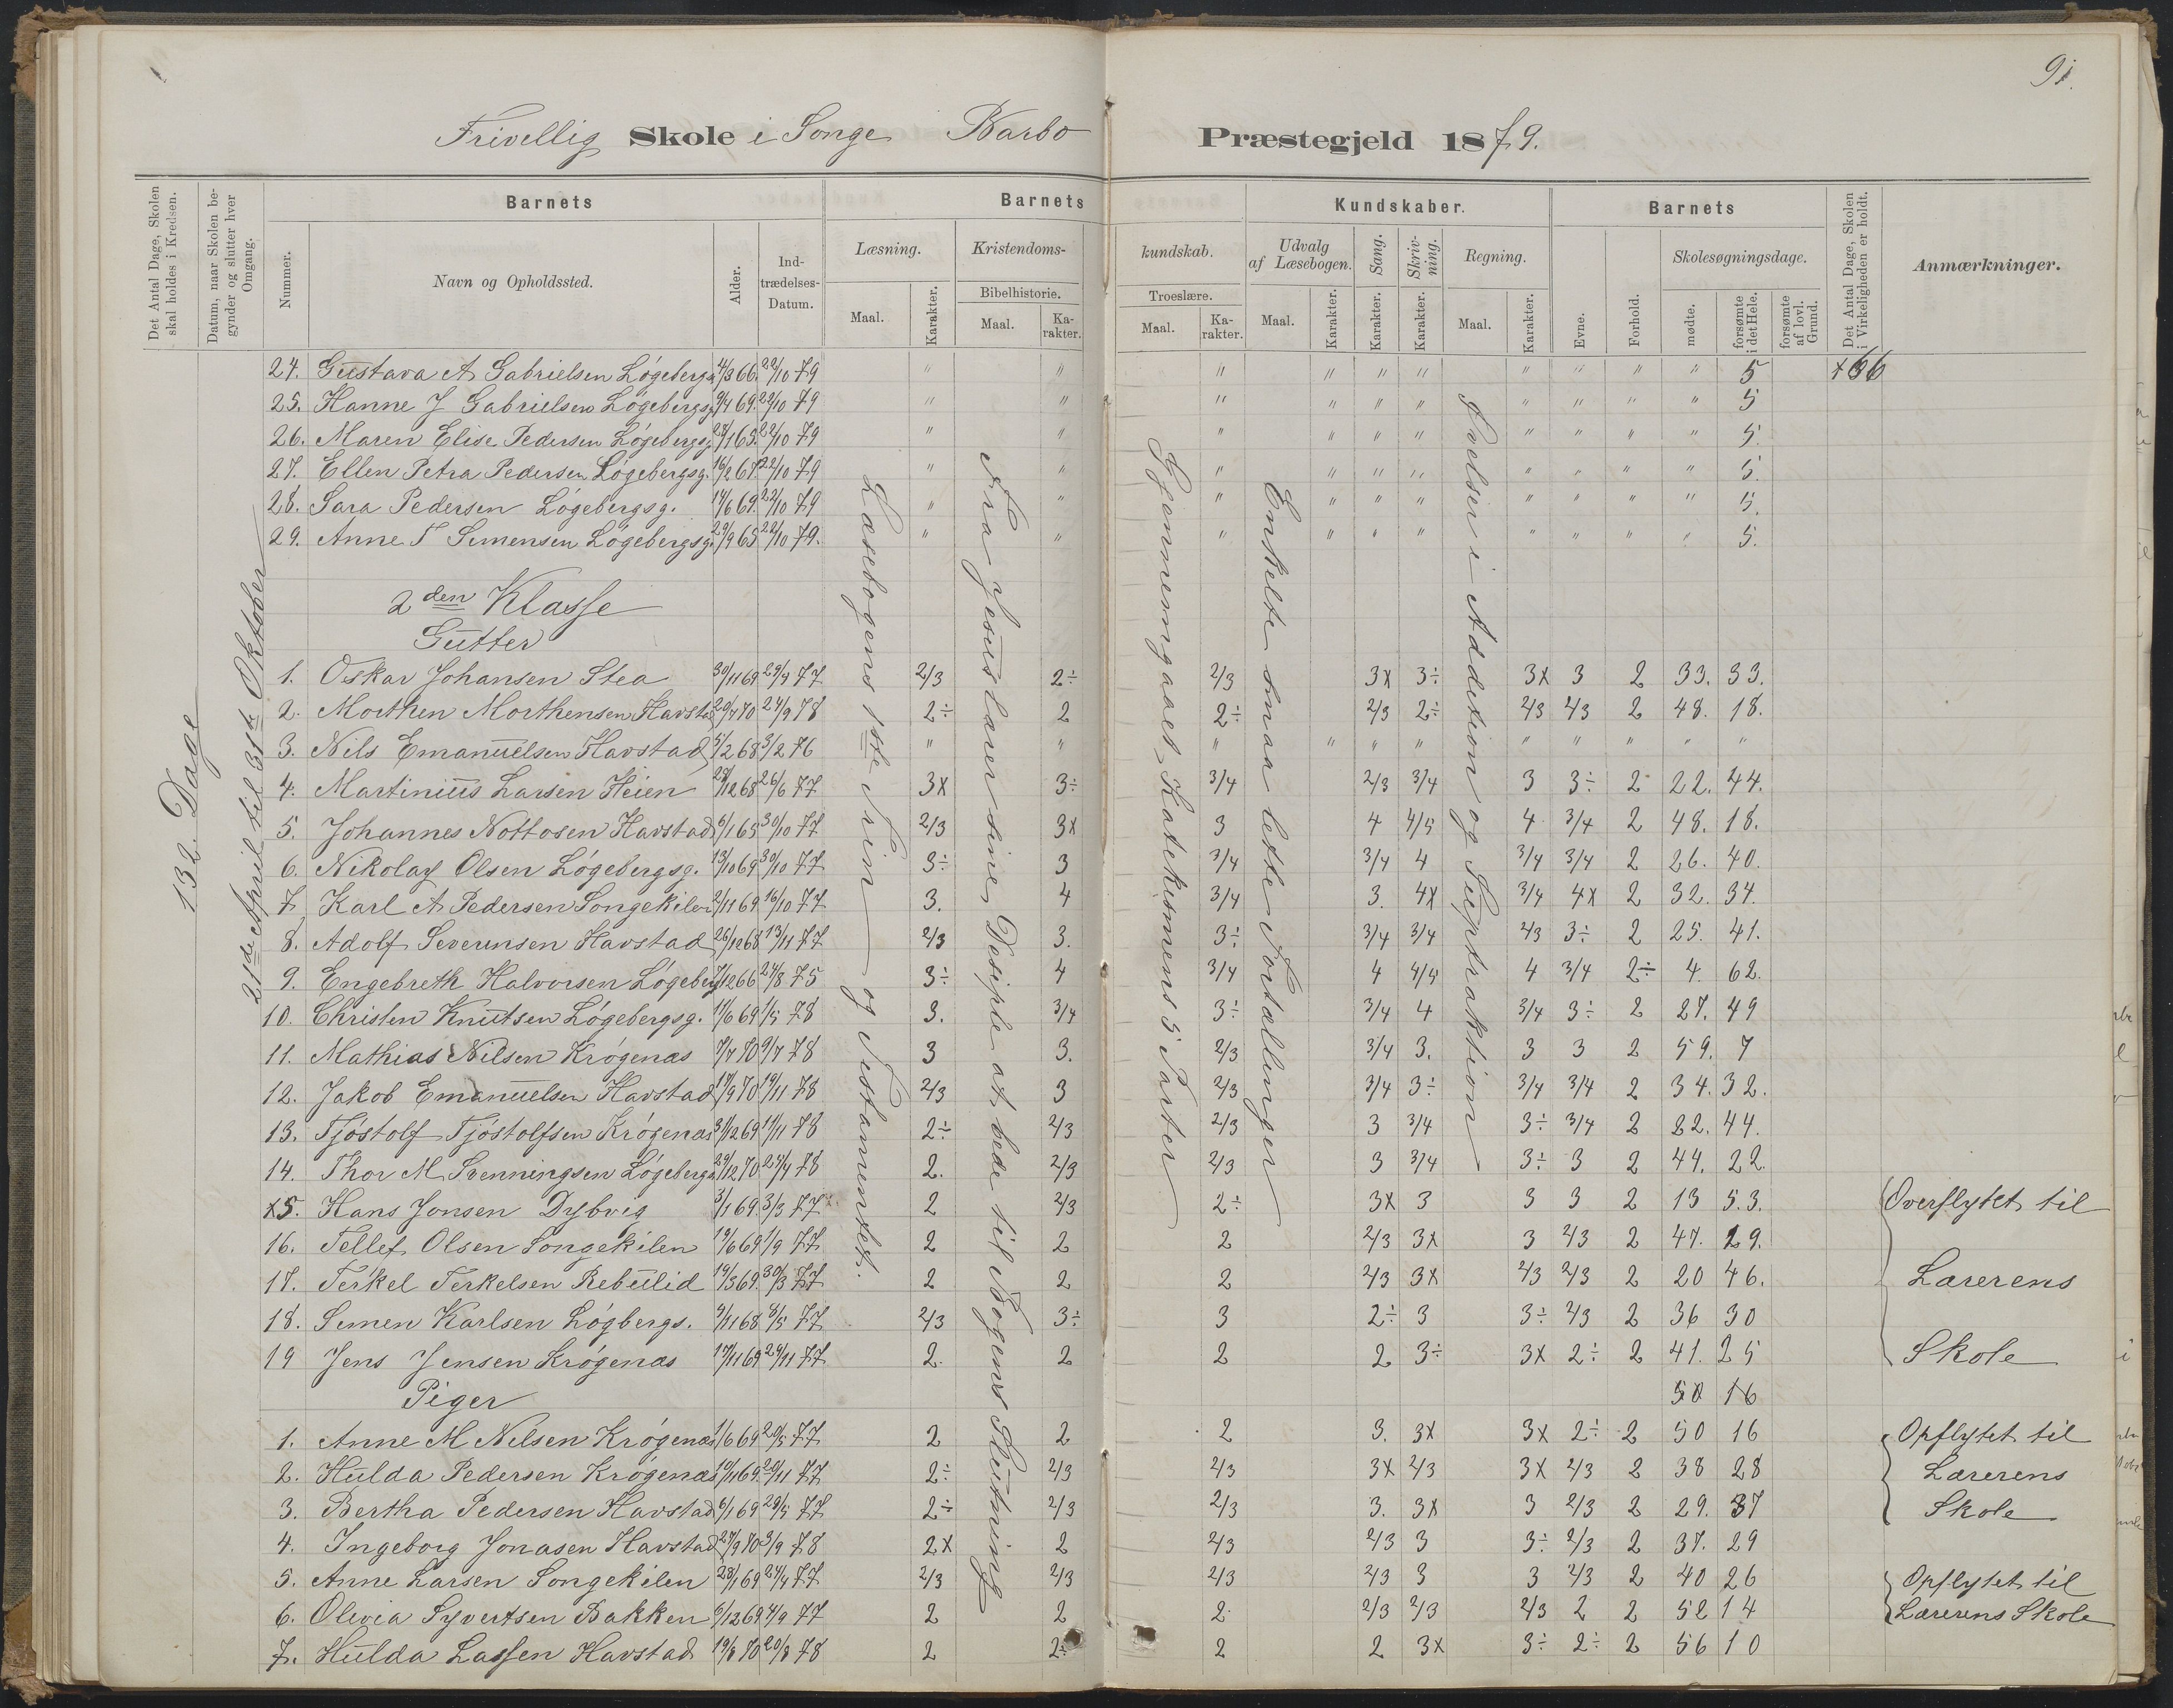 91.
Frivellig Skole i Songe Barbo Præstegjeld 1879.
Det Antal Dage, Skolen skal holdes i Kredsen.
Datum, naar Skolen begynder og slutter hver Omgang.
Barnets
Nummer.
Navn og Opholdssted.
Alder.
Indtrædelses-Datum.
Barnets Kundskaber.
Læsning.
Maal.
Karakter.
Kristendomskundskab.
Bibelhistorie.
Maal.
Karakter.
Troeslære.
Maal.
Karakter.
Udvalg af Læsebogen.
Maal.
Karakter.
Sang.
Karakter.
Skrivning.
Karakter.
Regning.
Maal.
Karakter.
Barnets
Evne.
Forhold.
Skolesøgningsdage.
mødte.
forsømte i det Hele.
forsømte af lovl. Grund.
Det Antal Dage, Skolen i Virkeligheden er holdt.
Anmærkninger.
132 Dage
21de April til 31te Oktober
Læsebogens 1ste Trin og Testamentet.
Fra Jesus lærer sine Disiple at bede til Bogens Slutning
Gjennemgaaet Katekismens 5 Parter
Enkelte smaa lette Fortællinger
Øvelser i Addetion og Suptraktion
24. Gustava A Gabrielsen Løgebergsg 4/3 66. 22/10 79 " " " " " " " " " " 5 66
25. Hanne J Gabrielsen Løgebergsg 9/4 69. 22/10 79 " " " " " " " " " " 5
26. Maren Elise Pedersen Løgebergsg. 28/1 65. 22/10 79 " " " " " " " " " " 5.
27. Ellen Petra Pedersen Løgebergsg. 16/2 67. 22/10 79 " " " " " " " " " " 5.
28. Sara Pedersen Løgebergsg. 14/6 69. 22/10 79 " " " " " " " " " " 5.
29. Anne T Simensen Løgebergsg. 29/9 65 22/10 79. " " " " " " " " " " 5.
2den Klasse
Gutter
1. Oskar Johansen Stea 30/11 69 29/4 77 2/3 2÷ 2/3 3x 3÷ 3x 3 2 33. 33.
2. Morthen Morthensen Havstad 20/4 70 24/9 78 2÷ 2 2÷ 2/3 2÷ 2/3 2/3 2 48. 18.
3. Nils Emanuelsen Havstad 5/2 68 3/2 76 " " " " " " " " " " "
4. Martinius Larsen Heien 28/12 68 26/6 77 3x 3÷ 3/4 2/3 3/4 3 3÷ 2 22. 44.
5. Johannes Nottosen Havstad 6/1 65 30/10 77 2/3 3x 3 4 4/5 4 3/4 2 48. 18.
6. Nikolay Olsen Løgebergsg. 13/10 69 30/10 77 3÷ 3 3/4 3/4 4 3/4 3/4 2 26. 40.
7. Karl A Pedersen Songekilen 2/11 69 16/10 77 3. 4 3/4 3. 4x 3/4 4x 2 32. 34.
8. Adolf Severensen Havstad 26/12 68 13/11 77 2/3 3. 3÷ 3/4 3/4 2/3 3÷ 2 25. 41.
9. Engebreth Halvorsen Løgeberg 7/12 66 24/8 75 3÷ 4 3/4 4 4/5 4 3/4 2÷ 4. 62.
10. Christen Knutsen Løgebergsg. 11/6 69 1/5 78 3. 3/4 3÷ 3/4 4 3/4 3÷ 2 27. 49
11. Mathias Nilsen Krøgenæs 7/7 70 9/7 78 3 3. 2/3 3/4 3. 3 3 2 59. 7
12. Jakob Emanuelsen Havstad 17/9 70 19/11 78 2/3 3 2/3 3/4 3÷ 3/4 3/4 2 34. 32.
13. Tjøstolf Tjøstolfsen Krøgenæs 31/12 69 11/11 78 2÷ 2/3 2/3 3 3/4 3÷ 3/4 2 22. 44.
14. Thor M Svenningsen Løgebergsg 29/12 70 24/4 78 2. 2/3 2/3 3 3/4 3÷ 3 2 44. 22.
15. Hans Jonsen Dybvig 3/1 69. 3/3 77. 2 2/3 2÷ 3x 3 3 3 2 13 53. Overflytet til
16. Tellef Olsen Songekilen 19/6 69 1/9 77 2 2 2 2/3 3x 3 2/3 2 47. 19.
17. Terkel Terkelsen Rebulid 19/3 69. 30/3 77 2 2 2 2/3 3x 2/3 2/3 2 20 46. Lærerens
18. Simen Karlsen Løgbergs. 9/11 68 8/5 77 2/3 3÷ 3 2÷ 3 3÷ 2/3 2 36 30
19 Jens Jensen Krøgenæs 17/11 69 24/11 77 2. 2 2 2 3÷ 3x 2÷ 2 41. 25 Skole
Piger 50 16
1. Anne M Nilsen Krøgenæs 1/6 69 20/5 77 2 2 2 3. 3x 3x 2÷ 2 50 16 Opflytet til
2. Hulda Pedersen Krøgenæs 10/11 69. 20/11 77 2÷ 2/3 2/3 3x 2/3 3x 2/3 2 38 28 Lærerens
3. Bertha Pedersen Havstad 6/1 69 29/5 77 2÷ 2/3 2/3 3. 3x 3 2/3 2 29. 37 Skole
4. Ingeborg Jonasen Havstad 27/9 70 3/9 78 2x 2 2/3 2/3 3 3÷ 2/3 2 37. 29
5. Anne Larsen Songekilen 28/1 69 24/4 77 2/3 2/3 2/3 2/3 3 3 2/3 2 40 26 Opflytet til
6. Olivia Syvertsen Bakken 6/12 69 4/9 77 2 2 2 2/3 2/3 2/3 2 2 52 14 Lærerens Skole
7. Hulda Lassen Havstad 19/8 70 20/8 78 2 2÷ 2 2 3x 3÷ 2÷ 2 56 10